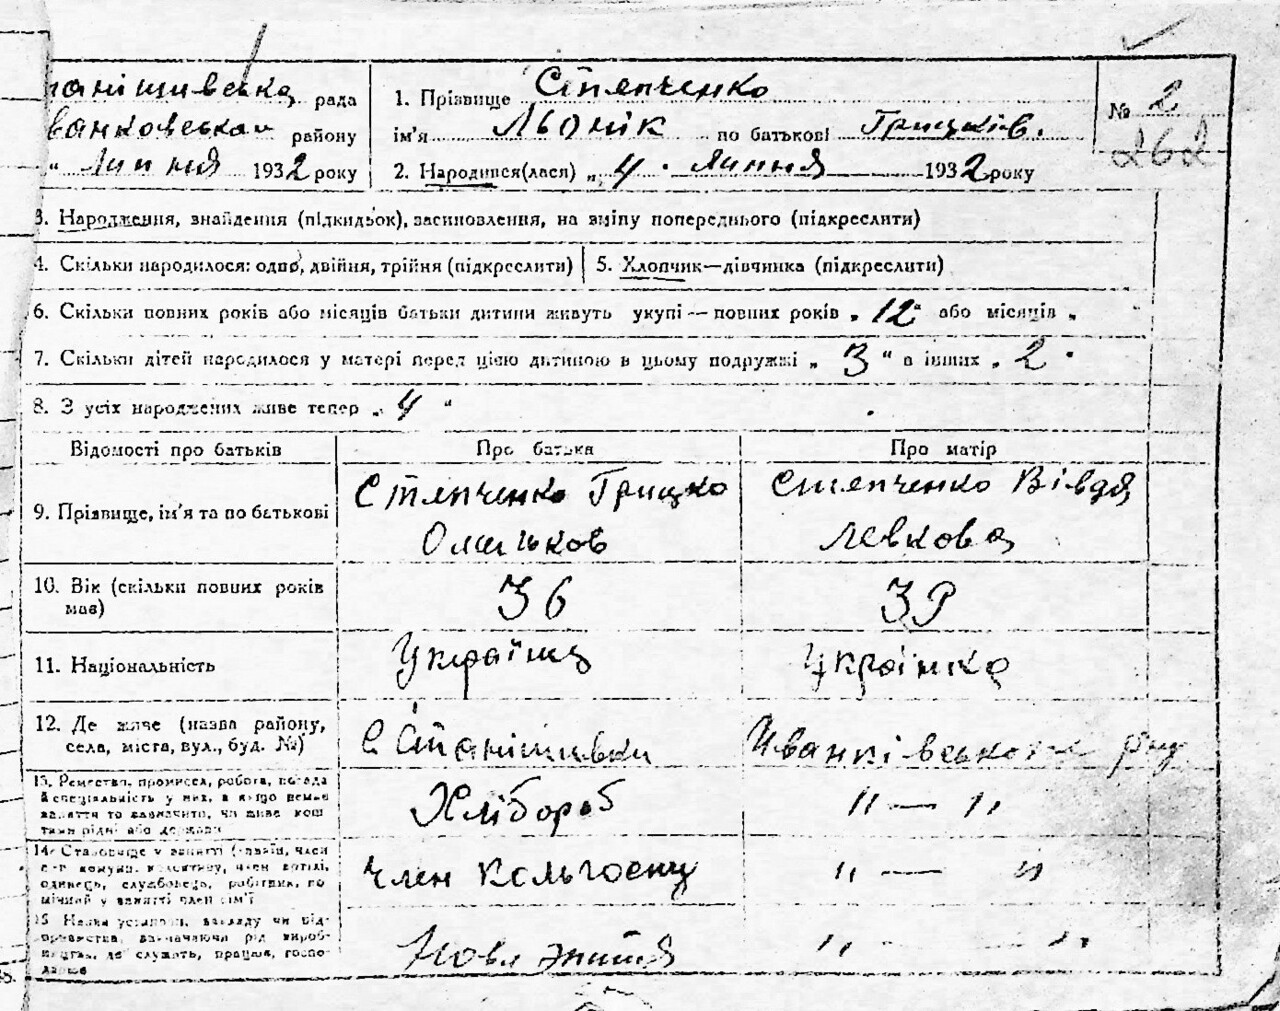 анішивська рада
ванковськ району
" Липня 1932 року
1. Прізвище Стяпченко
ім'я Льонік по батькові Грицків.
2. Народився(лася) „ 4 " липня 1932 року
№ 2
262
3. Народження, знайдення (підкидьок), засиновлення, на зміну попереднього (підкреслити)
4. Скільки народилося: одно, двійня, трійня (підкреслити)
5. Хлопчик—дівчинка (підкреслити)
6. Скільки повних років або місяців батьки дитини живуть укупі — повних років „ 12 " або місяців „
7. Скільки дітей народилося у матері перед цією дитиною в цьому подружжі „ 3 " в інших „ 2 "
8. З усіх народжених живе тепер „ 4 "
Відомості про батьків
Про батька
Про матір
9. Прізвище, ім'я та по батькові
Стяпченко Грицко
Омельков
Стяпченко Вівдя
Левкова
10. Вік (скільки повних років
має)
36
11. Національність
Українц
Українка
12. Де живе (назва району,
села, міста, вул., буд. №)
С Станішивки
Иванківського р-ну
13. Ремество, промисел, робота, посада
й спеціальність у них, а якщо немає
заняття то зазначити, чи живе кош
тами рідні або держави
Хлібороб
" — "
14. Становище у занятті (хазяїн, член
с-г комуни, колективу, член артілі,
одинець, службовець, робітник, по
мічний у занятті член сім'ї
член колгоспу
" — "
15. Назва установи, закладу чи під-
приємства, зазначаючи рід вироб-
ництва, де служить, працює, госпо-
дарює
Нове життя
" — "